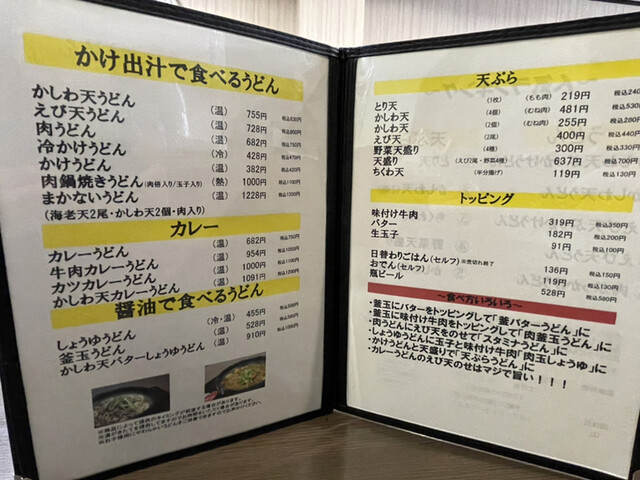 かけ出汁で食べるうどん
かしわ天うどん (温) 755円 税込830円
えび天うどん (温) 728円 税込800円
肉うどん (温) 682円 税込750円
冷かけうどん (冷) 428円 税込470円
かけうどん (温) 382円 税込420円
肉鍋焼きうどん(肉倍入り/玉子入り) (熱) 1000円 税込1100円
まかないうどん (温) 1228円 税込1350円
(海老天2尾・かしわ天2個・肉入り)
カレー
カレーうどん (温) 682円 税込750円
牛肉カレーうどん (温) 954円 税込1050円
カツカレーうどん (温) 1000円 税込1100円
かしわ天カレーうどん (温) 1091円 税込1200円
醤油で食べるうどん
しょうゆうどん (冷・温) 455円 税込500円
釜玉うどん (温) 528円 税込580円
かしわ天バターしょうゆうどん (温) 910円 税込1000円
天ぷら
とり天 (1枚) (もも肉) 219円 税込240
かしわ天 (4個) (むね肉) 481円 税込530
かしわ天 (2個) (むね肉) 255円 税込280
えび天 (2尾) 400円 税込440
野菜天盛り (4種) 300円 税込330
天盛り (えび2尾・野菜4種) 637円 税込700
ちくわ天 (半分揚げ) 119円 税込130円
トッピング
味付け牛肉 319円 税込350円
バター 182円 税込200円
生玉子 91円 税込100円
日替わりごはん(セルフ) ※売切れ終了 136円 税込150円
おでん(セルフ) 119円 税込130円
瓶ビール 528円 税込580円
～食べ方いろいろ～
・釜玉にバターをトッピングして「釜バターうどん」に
・釜玉に味付け牛肉をトッピングして「肉釜玉うどん」に
・肉うどんにえび天をのせて「スタミナうどん」に
・しょうゆうどんに玉子と味付け牛肉「肉玉しょうゆ」に
・かけうどんと天盛りで「天ぷらうどん」に
・カレーうどんのえび天のせはマジで旨い！！！